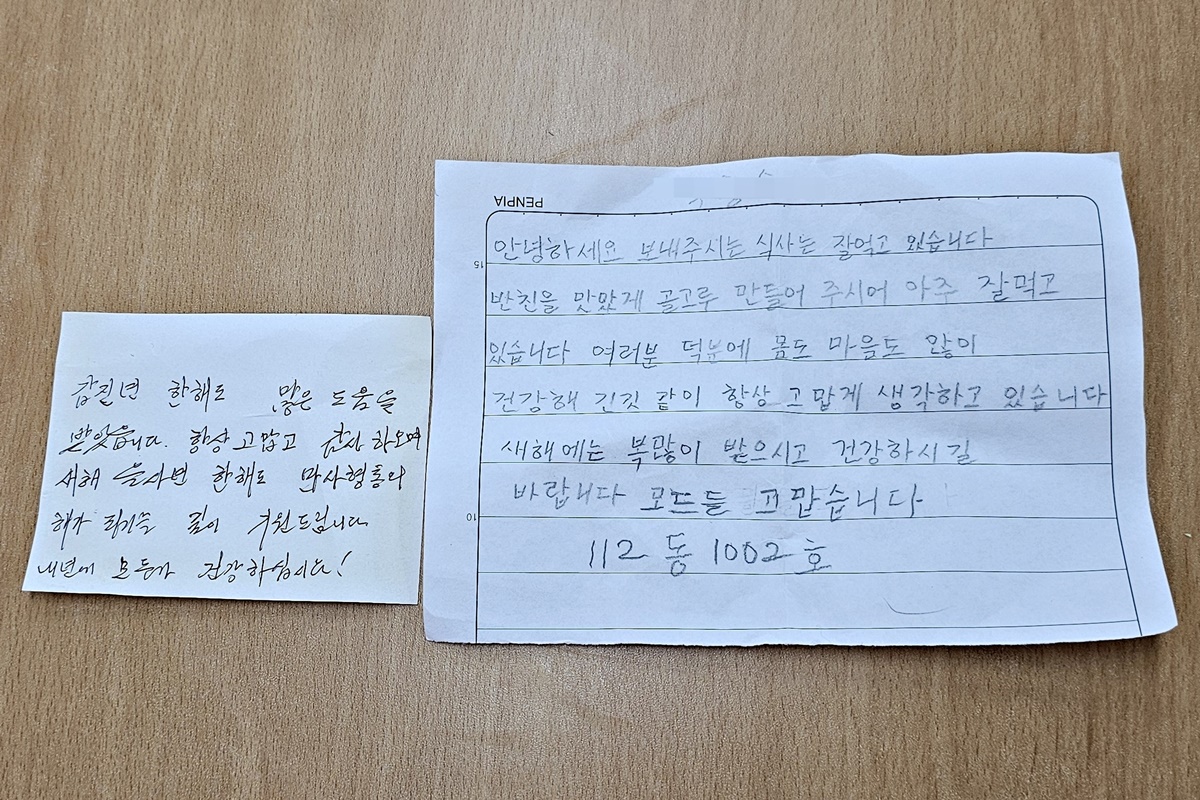 갑진년 한해도 많은 도움을
받았읍니다. 항상 고맙고 감사 하오며
새해 을사변 한해도 만사형통의
해가 되기를 깊이 기원드립니다
내년에 모두가 건강하십시다!
PENPIA
안녕하세요 보내주시는 식사는 잘먹고 있습니다
15
반친을 맛았게 골고루 만들어 주시어 아주 잘먹고
있습니다 여러분 덕분에 몸도 마음도 많이
건강해 진깃 같이 항상 고맙게 생각하고 있습니다
새해에는 복많이 받으시고 건강하시길
바랍니다 모드들 고맙습니다
10
112동 1002호